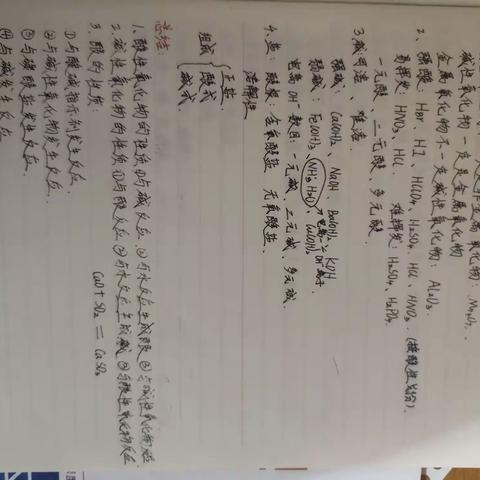 金属氧化物: Mn₂O₇.
碱性氧化物一定是金属氧化物
金属氧化物不一定碱性氧化物: Al₂O₃.
2、强酸: HBr、HI、HClO₄、H₂SO₄、HCl、HNO₃. (按酸性划分).
易挥发: HNO₃、HCl 难挥发: H₂SO₄、H₃PO₄
一元酸、二元酸、多元酸.
3、碱 可溶 难溶
强碱: Ca(OH)₂、NaOH、Ba(OH)₂、KOH
弱碱: Fe(OH)₃ NH₃·H₂O、Cu(OH)₂
电离OH⁻数目: 一元碱、二元碱、多元碱.
4、盐: 溶解性
含氧酸盐 无氧酸盐.
组成 正盐.
酸式
碱式
总结:
1、酸性氧化物的性质 ①与碱反应. ②与水反应生成酸 ③与碱性氧化物反应.
2、碱性氧化物的性质 ①与酸反应 ②与水反应生成碱 ③与酸性氧化物反应
CaO + SO₂ = CaSO₃
3、酸的性质:
①与酸碱指示剂发生反应.
②与碱性氧化物发生反应.
③与碳酸盐发生反应.
④与碱发生反应